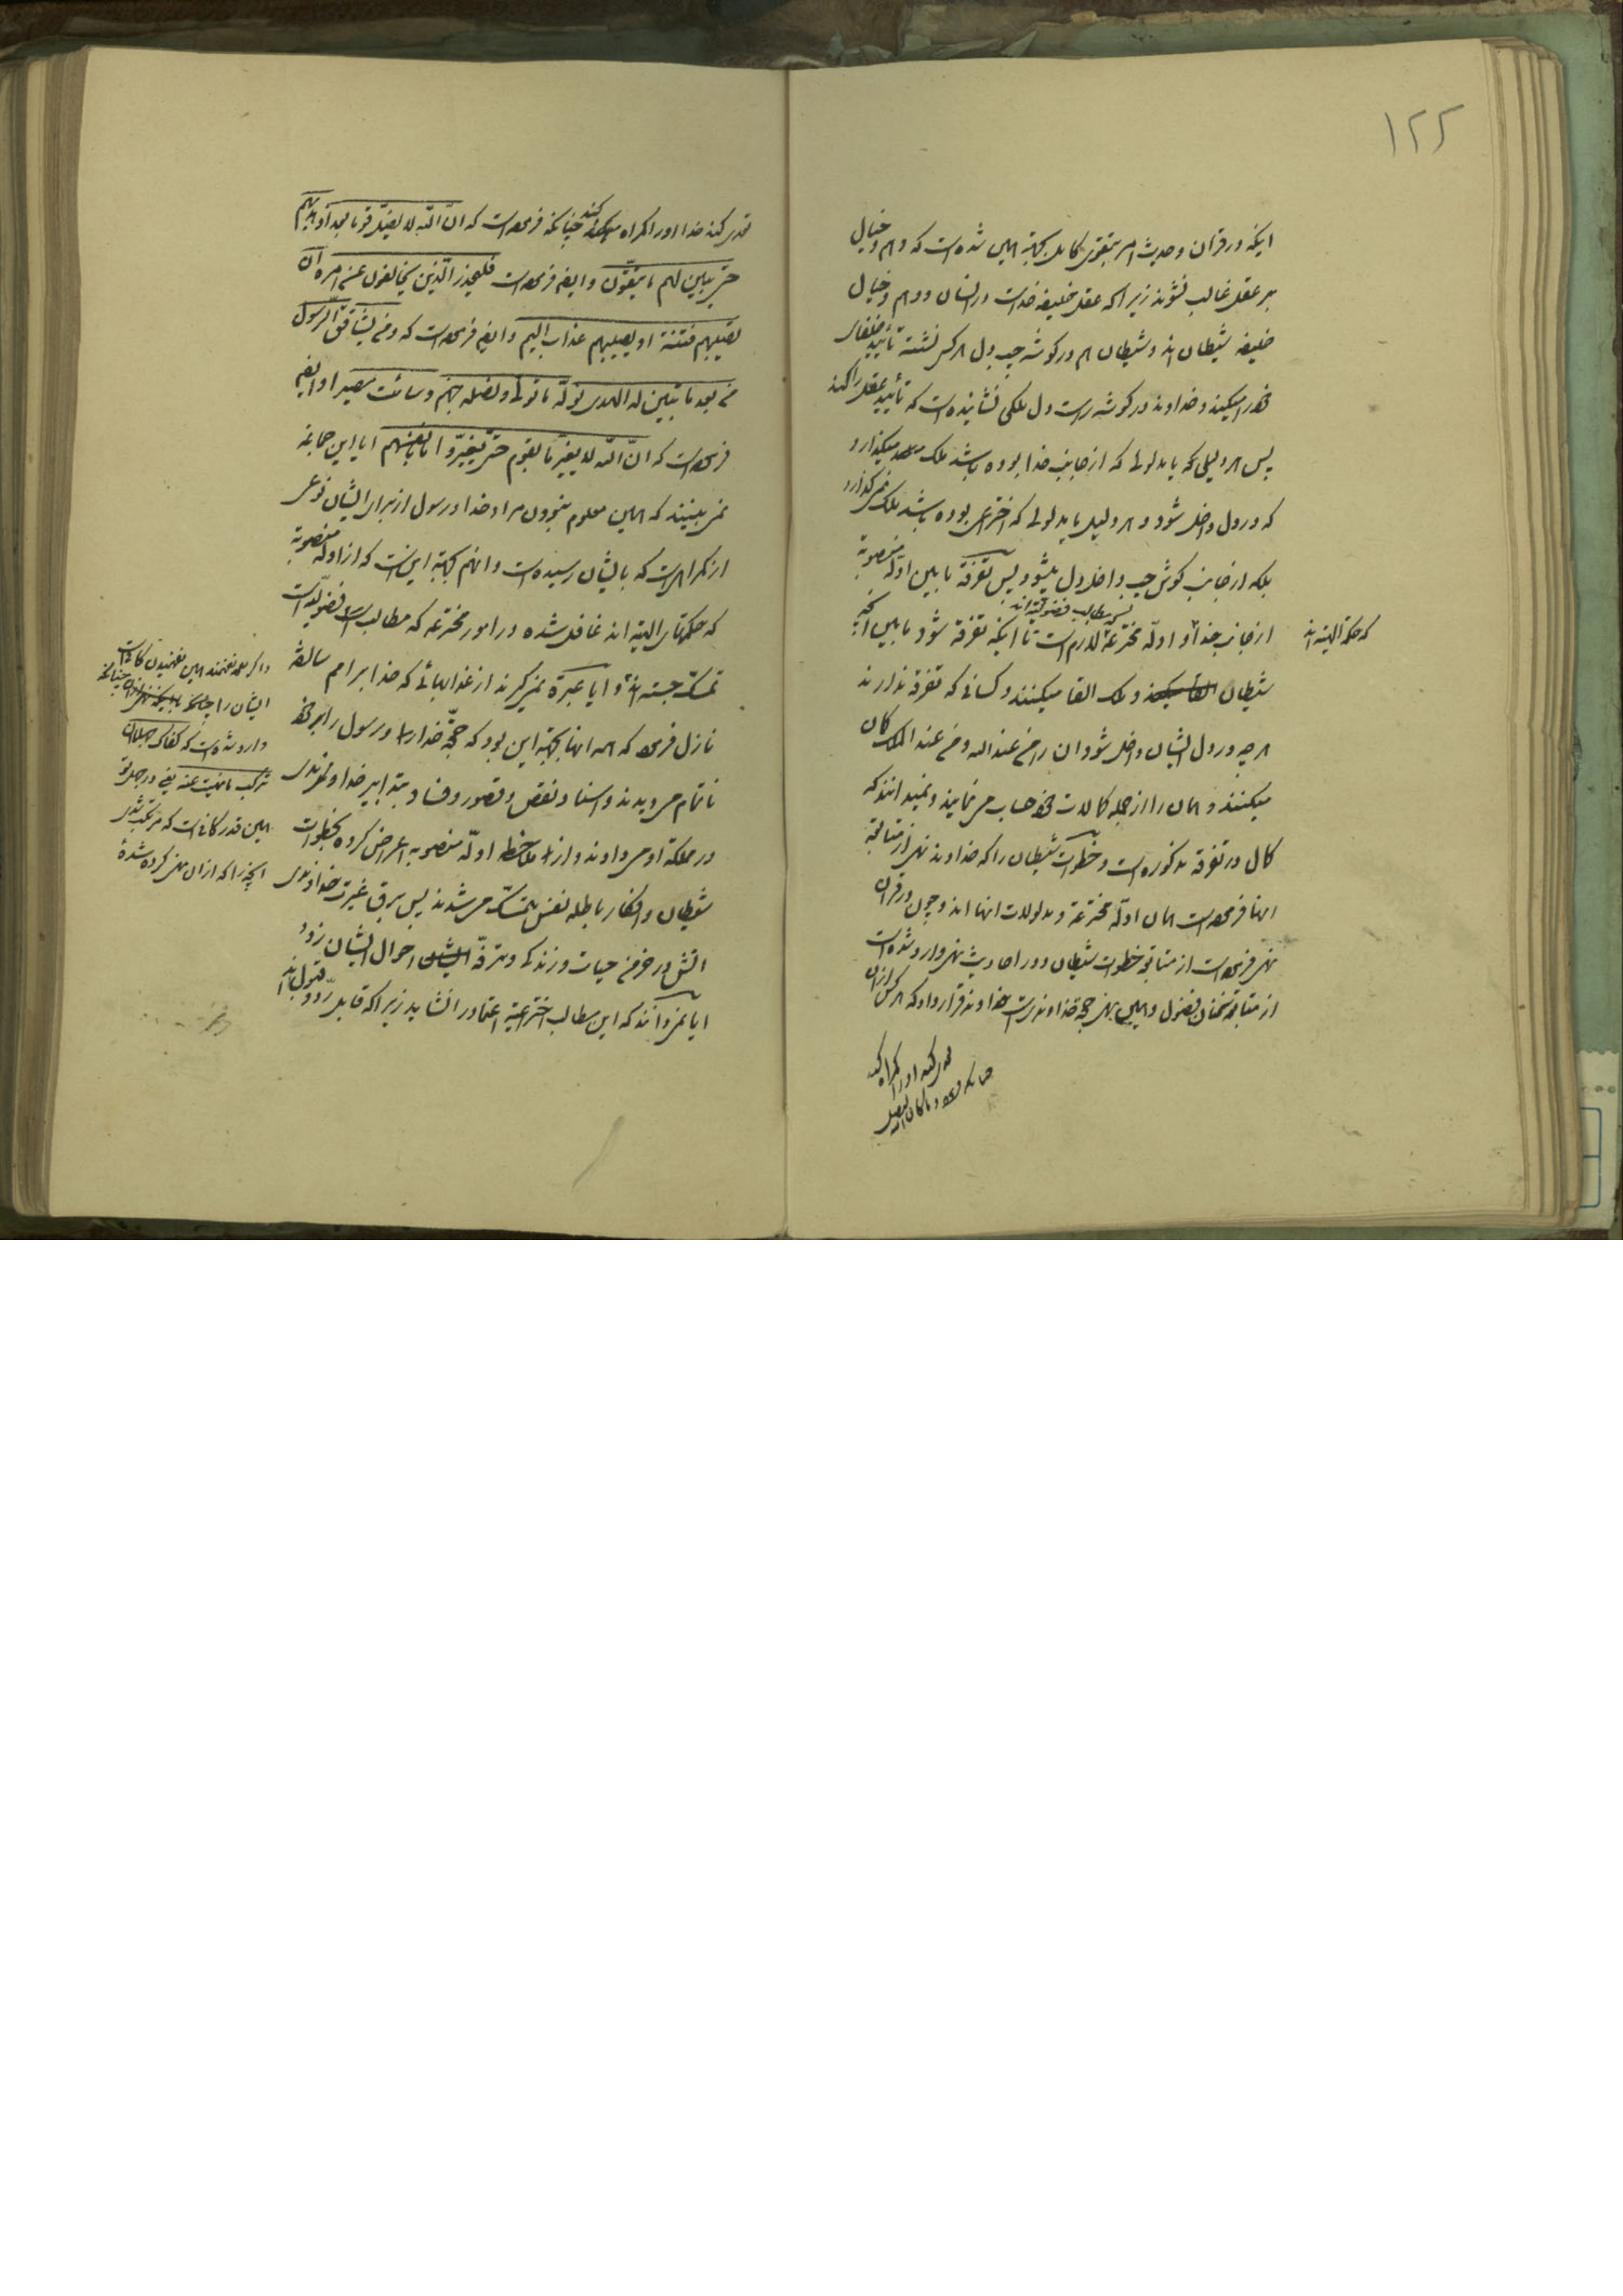 ۱۲۲
اینکه در قران و حدیث امر بتقوی کامل بجهة همین شده است که وهم و خیال
بر عقل غالب نشوند زیرا که عقل خلیفه خداست در انسان و وهم و خیال
خلیفه شیطان اند و شیطان هم در گوشه چپ دل هر کس نشسته تأیید خلفای
خود را میکند و خداوند در گوشه راست دل ملکی نشانیده است که تأیید عقل را کند
پس هر دلیلی که یا مدلولی که از جانب خدا بوده باشد ملک میگذارد
که در دل داخل شود و هر دلیل یا مدلولی که اختراعی بوده باشد ملک نمی گذارد
بلکه از جانب گوش چپ داخل دل میشود پس تفرقة ما بین ادله منصوبة
از جانب خدا و ادلّه مخترعة لازم است تا اینکه تفرقة شود ما بین آنچه
که حکمة الهیته اند
پس مطالب فضولیّه اند
شیطان و ملک القا میکنند و کسانی که تفرقة ندارند
هر چه در دل ایشان داخل شود ان را من عند الله و من عند الملک گمان
میکنند و همان را از جمله کمالات خود حساب می نمایند و نمیدانند که
کمال در تفرقة مذکوره است و خطوات شیطان را که خداوند نهی از متابعة
انها فرموده است همان ادلّه مخترعة و مدلولات انها اند و چون در قران
نهی فرموده است از متابعة خطوات شیطان و در احادیث نهی وارد شده است
از متابعة سخنان فضول و همین نهی حجة خداوندی است خداوند قرار داد که هر کس از ان
تعدی کند او را گمراه کند
چنانکه فرموده و ما کان الله لیضل
تعدی کند خدا او را گمراه کند چنانکه فرموده است که انّ الله لا یضلّ قوما بعد اذ هدیهم
حتی یبیّن لهم ما یتّقون و ایضا فرموده است فلیحذر الّذین یخالفون عن امره ان
تصیبهم فتنة او یصیبهم عذاب الیم و ایضا فرموده است که و من یشاقق الرّسول
من بعد ما تبیّن له الهدی نولّه ما تولی و نصله جهنم و سائت مصیرا و ایضا
فرموده است که انّ الله لا یغیّر ما بقوم حتی یغیّروا ما بانفسهم ایا این جماعة
نمی بینند که همین معلوم نبودن مراد خدا و رسول از برای ایشان نوعی
از گمراهی است که بایشان رسیده است و انهم بجهة این است که از ادله منصوبة
که حکمتهای الهیّه اند غافل شده در امور مخترعه که مطالب فضولیّه است
تمسّک جسته اند و ایا عبرة نمی گیرند از عذابهائی که خدا بر امم سالفة
نازل فرمود که همه انها بجهة این بود که حجّة خدا را و رسول را بر خود
ناتمام می دیدند و اسناد نقص و قصور و فساد بتدابیر خداوندی
در مملکة او می دادند و از ملاحظه ادلّه منصوبه اعراض کرده بخطوات
شیطان و افکار باطله نفس متمسّک می شدند پس برق غیرت خداوندی
اتش در خرمن حیات و زندگی و ترفّه احوال ایشان زد
ایا نمی دانند که این مطالب اختراعیّه اعتماد را نشاید زیرا که قابل ردّ و قبول اند
و اگر همه نفهمند همین نفهمیدن کافیست
ایشان را چنانکه
وارد شده است که کفاک جهلا ان
ترکب ما نهیت عنه یعنی در جهل تو
همین قدر کافی است که مرتکب شدی
آنچه را که از ان نهی کرده شدهٔ